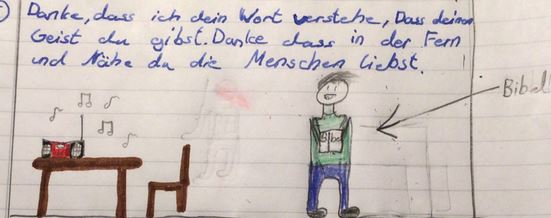 Danke, dass ich dein Wort verstehe, Dass deinen
Geist du gibst. Danke dass in der Fern
und Nähe du die Menschen liebst.
Bibel
Bibel